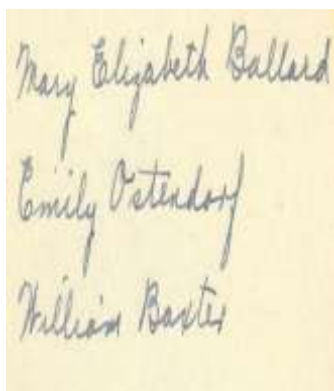 Mary Elizabeth Ballard
Emily Ostendorf
William Baxter